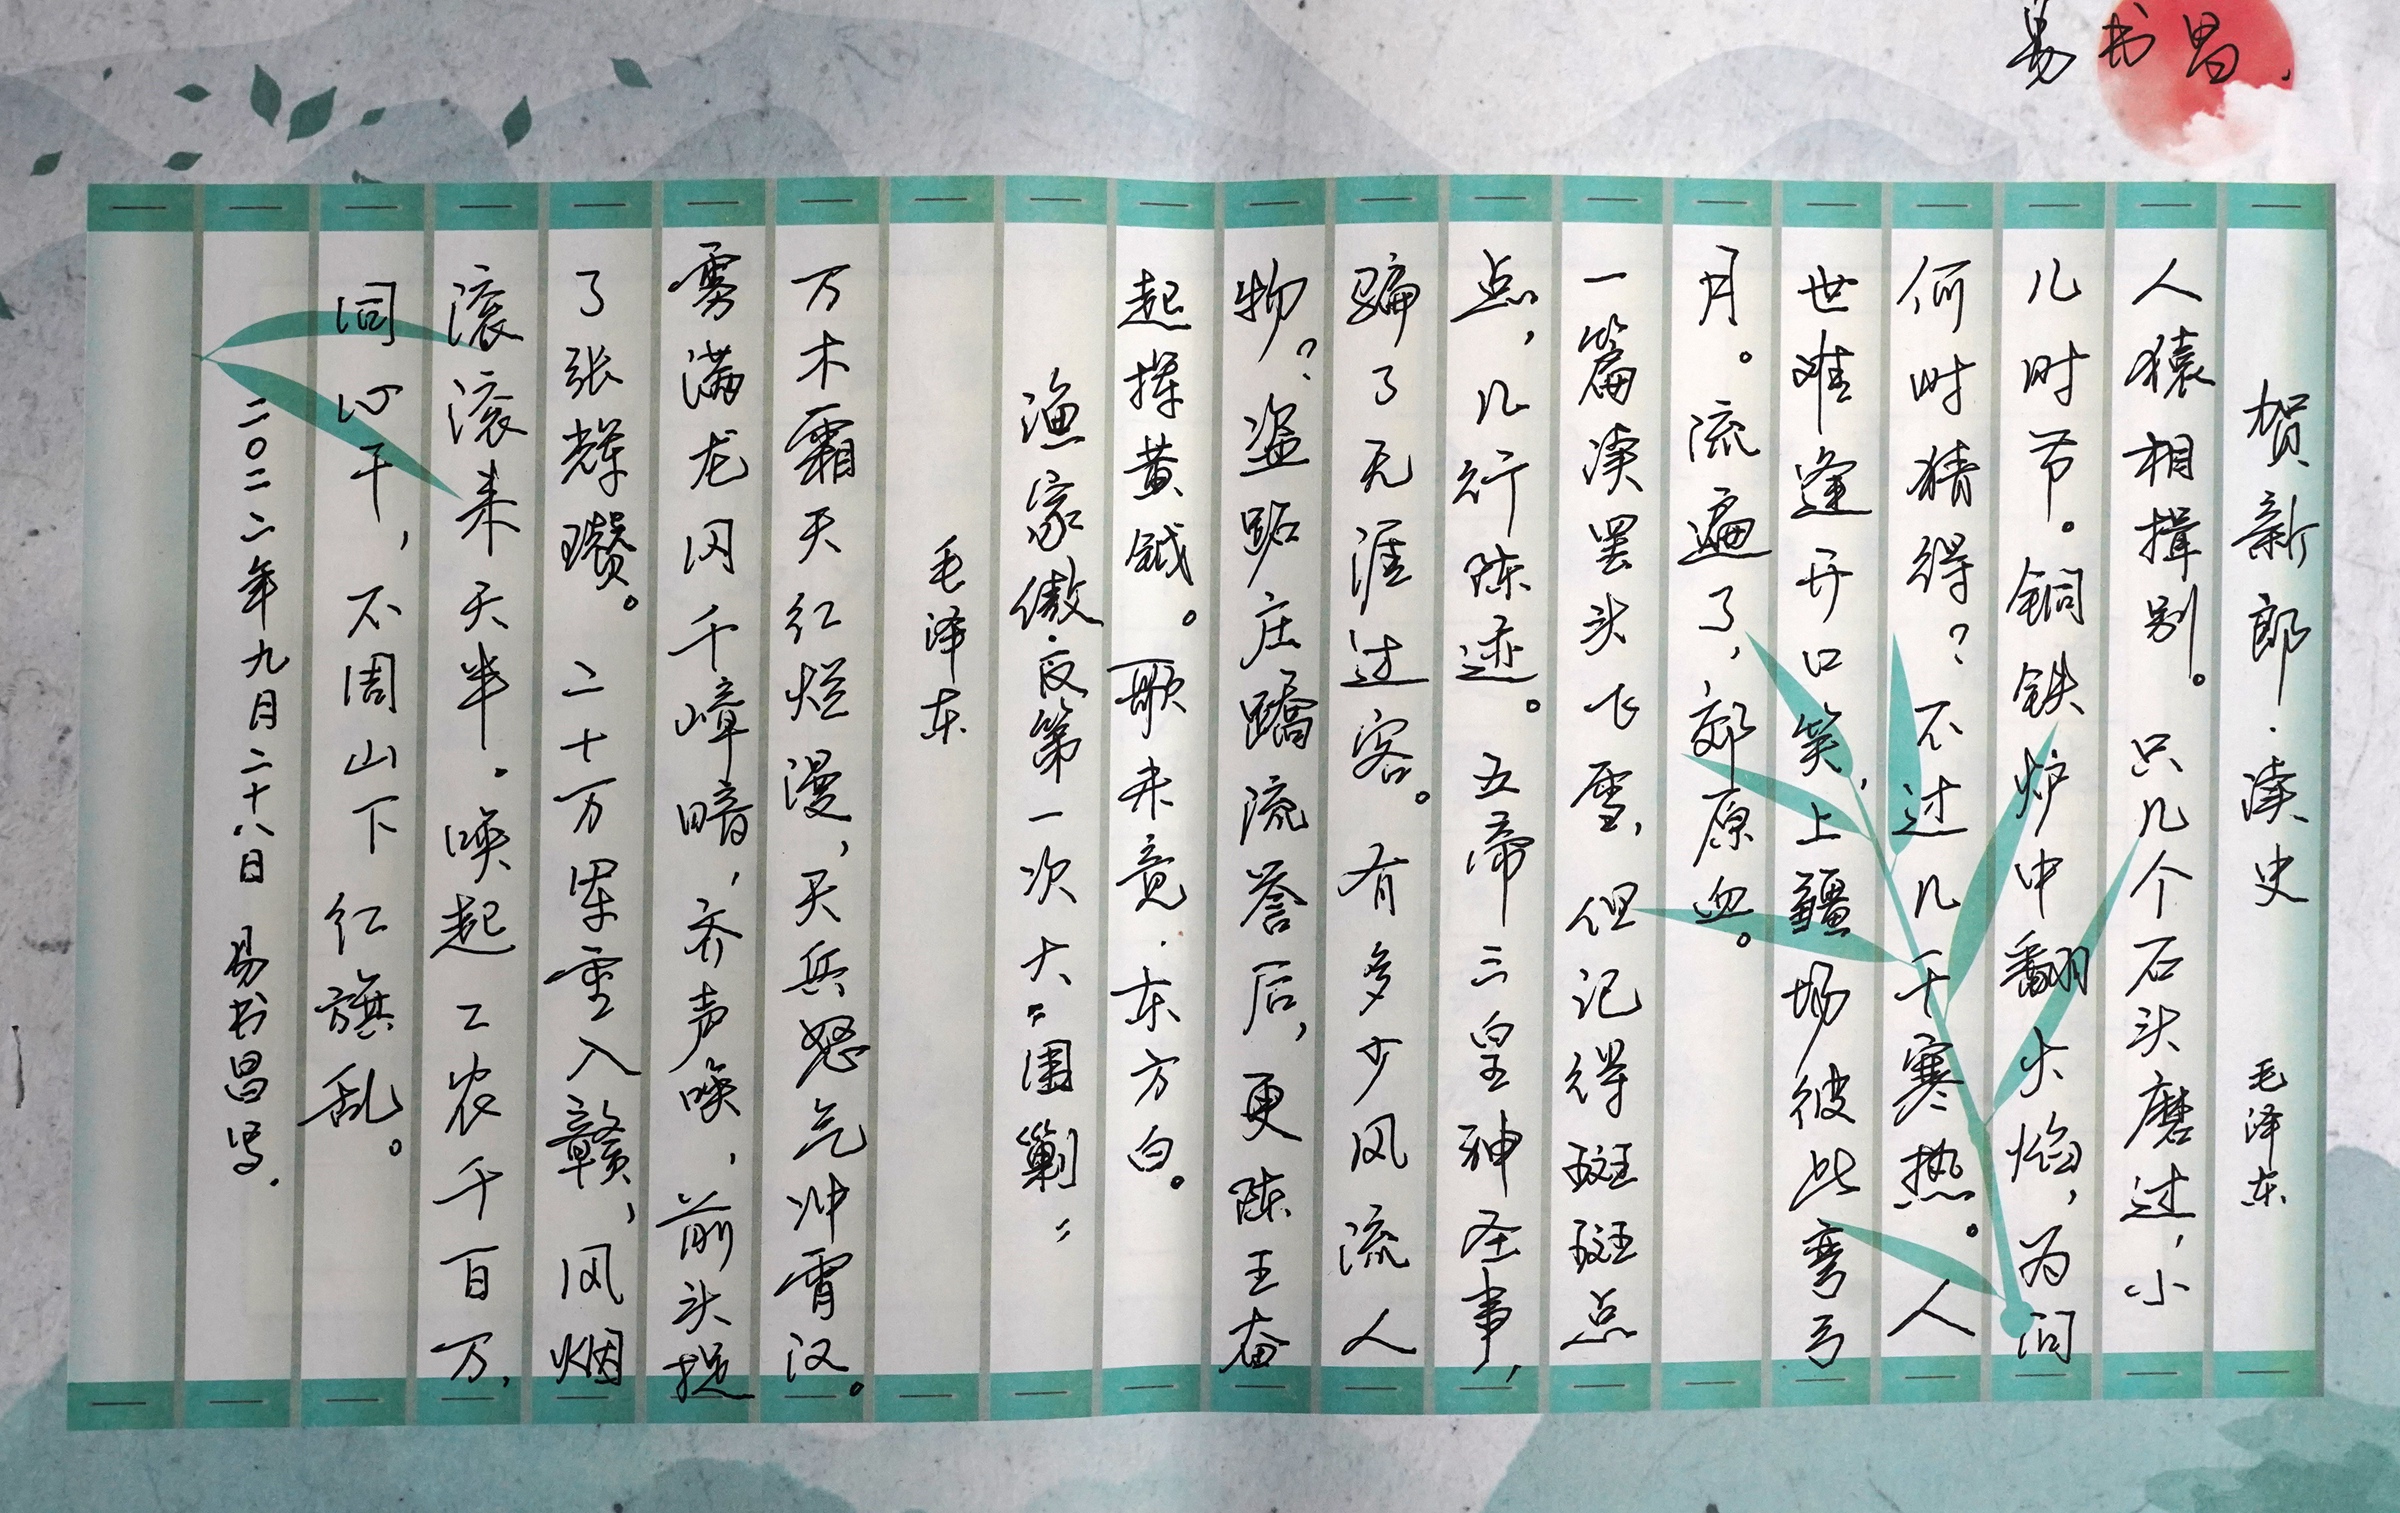 易书昌.
贺新郎·读史 毛泽东
人猿相揖别。只几个石头磨过，小
儿时节。铜铁炉中翻火焰，为问
何时猜得？不过几千寒热。人
世难逢开口笑，上疆场彼此弯弓
月。流遍了，郊原血。
一篇读罢头飞雪，但记得斑斑点
点，几行陈迹。五帝三皇神圣事，
骗了无涯过客。有多少风流人
物？盗跖庄蹻流誉后，更陈王奋
起挥黄钺。歌未竟，东方白。
渔家傲·反第一次大"围剿"
毛泽东
万木霜天红烂漫，天兵怒气冲霄汉。
雾满龙冈千嶂暗，齐声唤，前头捉
了张辉瓒。二十万军重入赣，风烟
滚滚来天半。唤起工农千百万，
同心干，不周山下红旗乱。
二〇二二年九月二十八日 易书昌写.